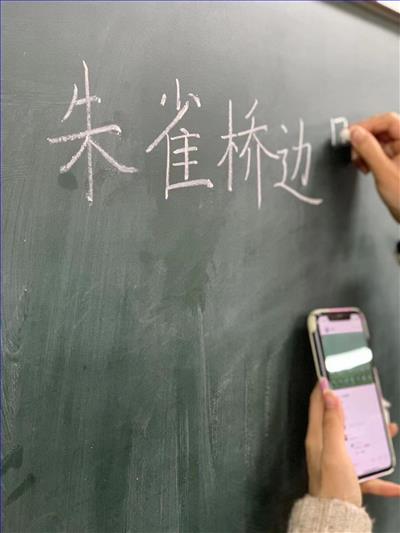 朱雀桥边